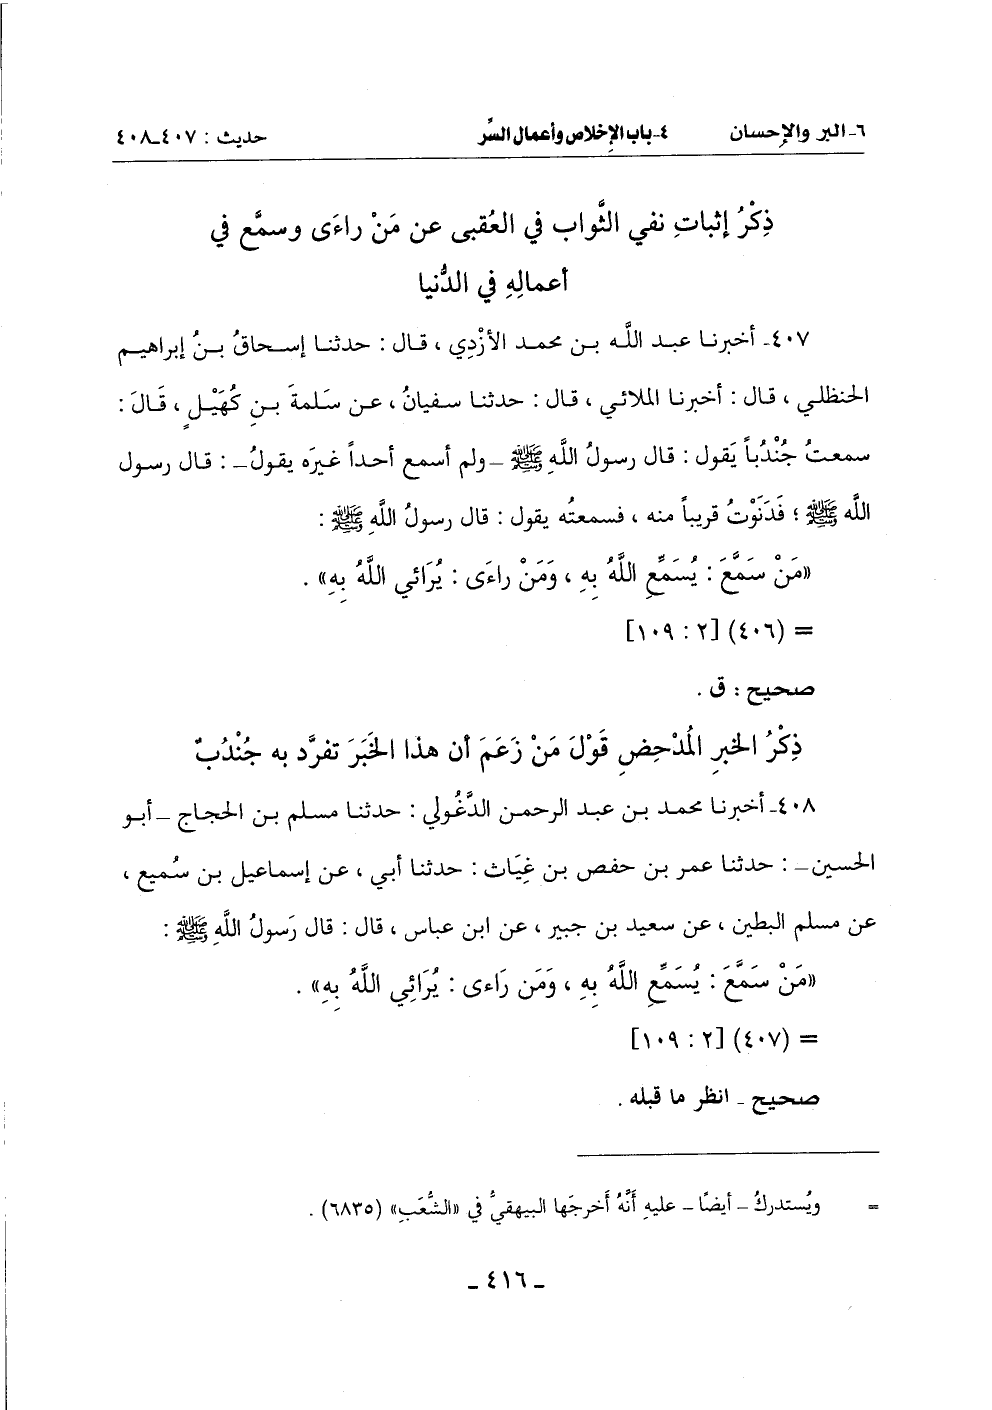 ٦- البر والإحسان ٤- باب الإخلاص وأعمال السِّر حديث : ٤٠٧-٤٠٨
ذِكْرُ إثباتِ نفي الثَّواب في العُقبى عن مَنْ راءَى وسمَّع في
أعمالِهِ في الدُّنيا
٤٠٧- أخبرنا عبد اللَّه بن محمد الأزْدِي ، قال : حدثنا إسحاقُ بنُ إبراهيم
الحنظلي ، قال : أخبرنا الملائي ، قال : حدثنا سفيانُ ، عن سَلمةَ بنِ كُهَيْلٍ ، قَالَ :
سمعتُ جُنْدُباً يَقول : قال رسولُ اللَّهِ ﷺ -ولم أسمع أحداً غيرَه يقولُ- : قال رسول
اللَّه ﷺ ؛ فَدَنَوْتُ قريباً منه ، فسمعتُه يقول : قال رسولُ اللَّهِ ﷺ :
«مَنْ سَمَّعَ : يُسَمِّعِ اللَّهُ بِهِ ، وَمَنْ راءَى : يُرَائي اللَّهُ بِهِ» .
= (٤٠٦) [٢ : ١٠٩]
صحيح : ق .
ذِكْرُ الخبرِ المُدْحِضِ قَوْلَ مَنْ زَعَمَ أن هذا الخَبَرَ تفرَّد به جُنْدُبٌ
٤٠٨- أخبرنا محمد بن عبد الرحمن الدَّغُولي : حدثنا مسلم بن الحجاج - أبو
الحسين- : حدثنا عمر بن حفص بن غِيَاث : حدثنا أبي ، عن إسماعيل بن سُميع ،
عن مسلم البطين ، عن سعيد بن جبير ، عن ابن عباس ، قال : قال رَسولُ اللَّهِ ﷺ :
«مَنْ سَمَّعَ : يُسَمِّعِ اللَّهُ بِهِ ، وَمَن رَاءى : يُرَائِي اللَّهُ بِهِ» .
= (٤٠٧) [٢ : ١٠٩]
صحيح - انظر ما قبله .
= ويُستدركُ - أيضًا - عليهِ أَنَّهُ أخرجَها البيهقيُّ في «الشُّعَبِ» (٦٨٣٥) .
- ٤١٦ -